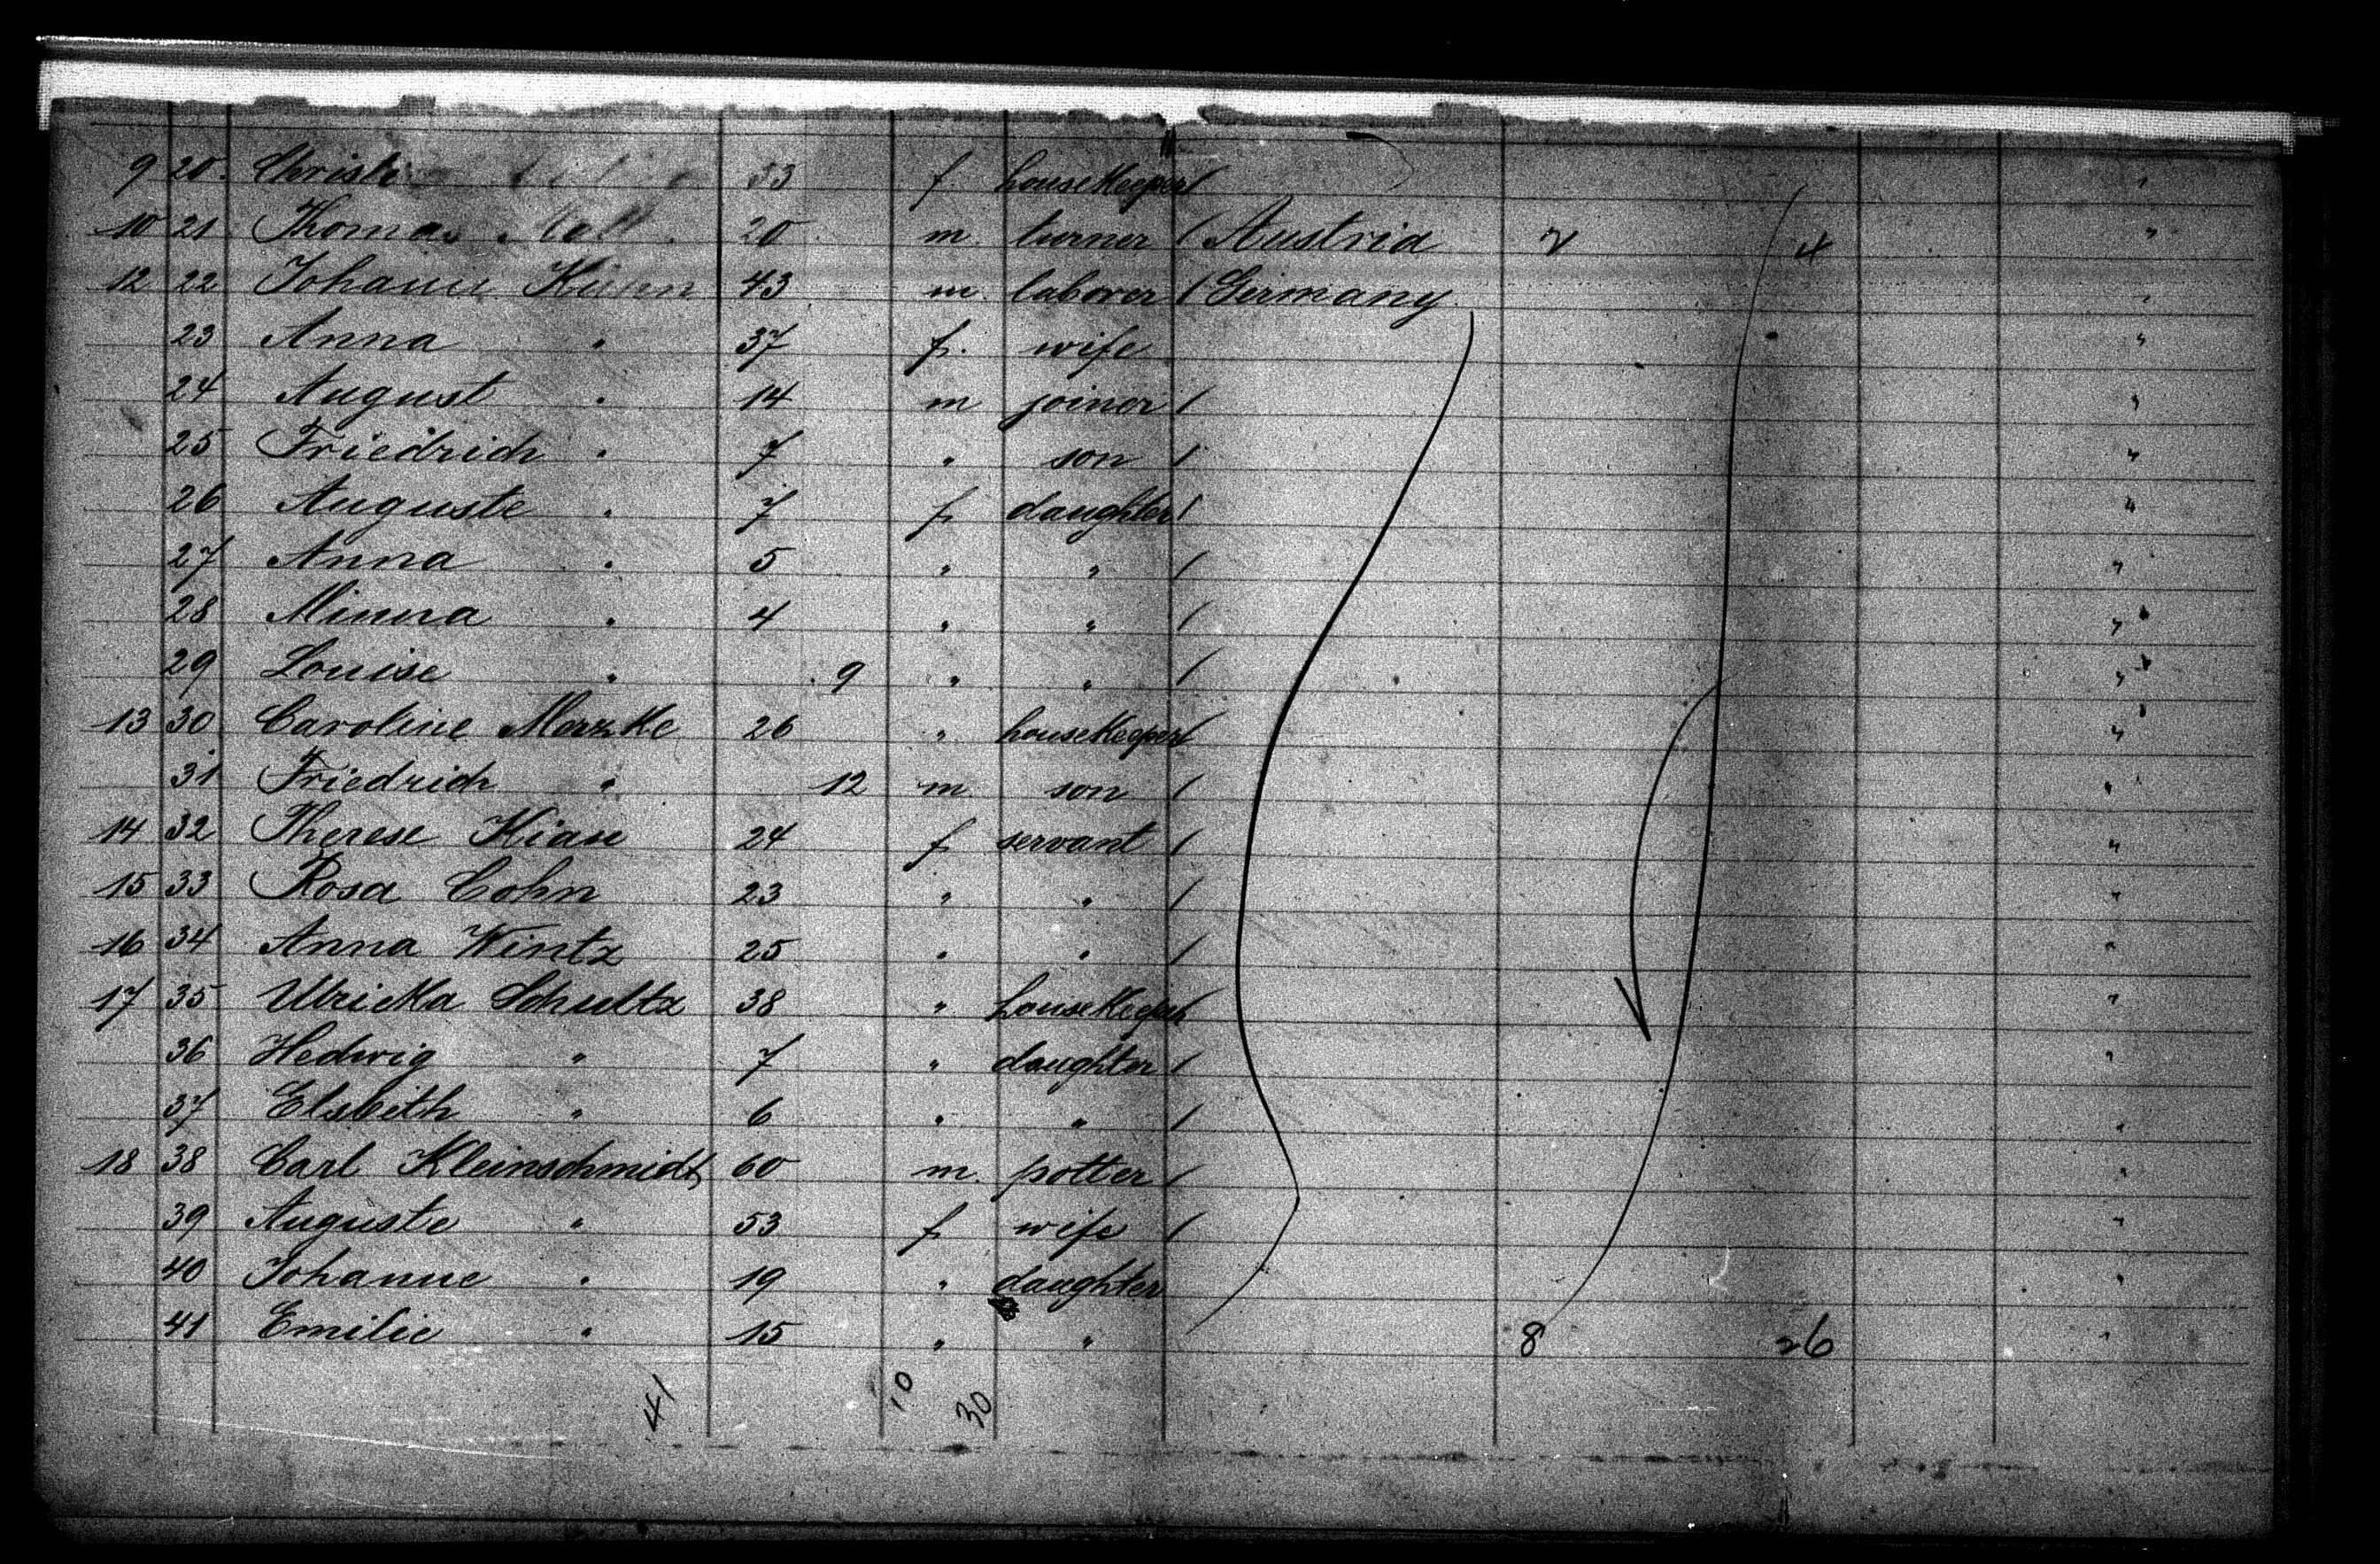 9 20. 53 f. housekeeper /
10 21. Thomas 20 m. turner / Austria 4
12 22 Johann 43 m. laborer / Germany
23 Anna " 37 f. wife "
24 August " 14 m joiner / "
25 Friedrich " 7 " son / "
26 Auguste " 7 f. daughter / "
27 Anna " 5 " " / "
28 Minna " 4 " " / "
29 Louise " 9 " " / "
13 30 Caroline Merzke 26 " housekeeper / "
31 Friedrich " 12 m son / "
14 32 Therese 24 f servant / "
15 33 Rosa Cohn 23 " " / "
16 34 Anna Wintz 25 " " / "
17 35 Ulricka Schultz 38 " housekeeper / "
36 Hedwig " 7 " daughter / "
37 Elsbeth " 6 " " / "
18 38 Carl Kleinschmidt 60 m. potter / "
39 Auguste " 53 f wife / "
40 Johanne " 19 " daughter "
41 Emilie " 15 " " 8 26 "
41 10 30